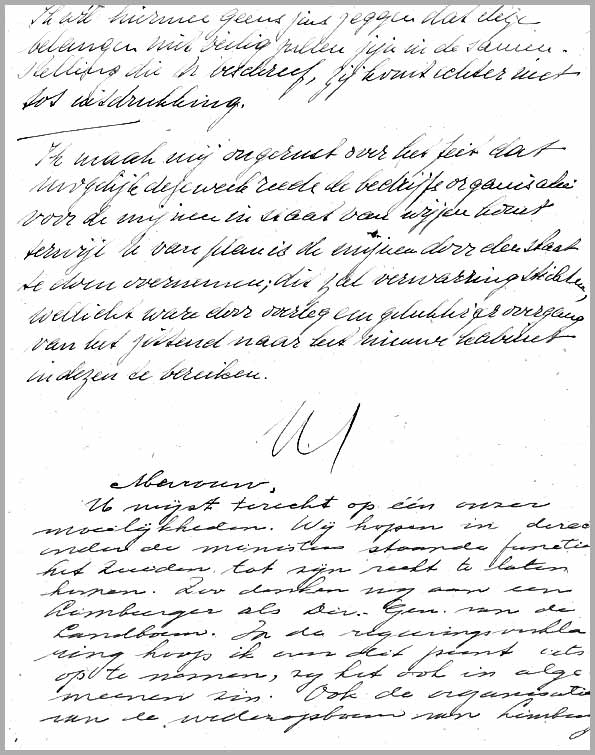 Ik wil hiermee geenszins zeggen dat deze
belangen niet veilig zullen zijn in de samen-
stelling die U beschreef, zij komt echter niet
tot uitdrukking.
Ik maak mij ongerust over het feit dat
mogelijk deze week reeds de bedrijfsorganisatie
voor de mijnen in staat van wijzen komt
terwijl U van plan is de mijnen door den staat
te doen overnemen; dit zal verwarring stichten,
wellicht ware door overleg een gelukkiger overgang
van het zittend naar het nieuwe kabinet
in dezen te bereiken.
Mevrouw,
U wijst terecht op één onzer
moeilijkheden. Wij hopen in direct
onder de ministers staande functie
het Zuiden tot zijn recht te laten
komen. Zoo denken wij aan een
Limburger als Dir.-Gen. van de
Landbouw. In de regeeringsverkla
ring hoop ik over dit punt iets
op te nemen, zij het ook in alge
meenen zin. Ook de organisatie
van de wederopbouw van Limburg